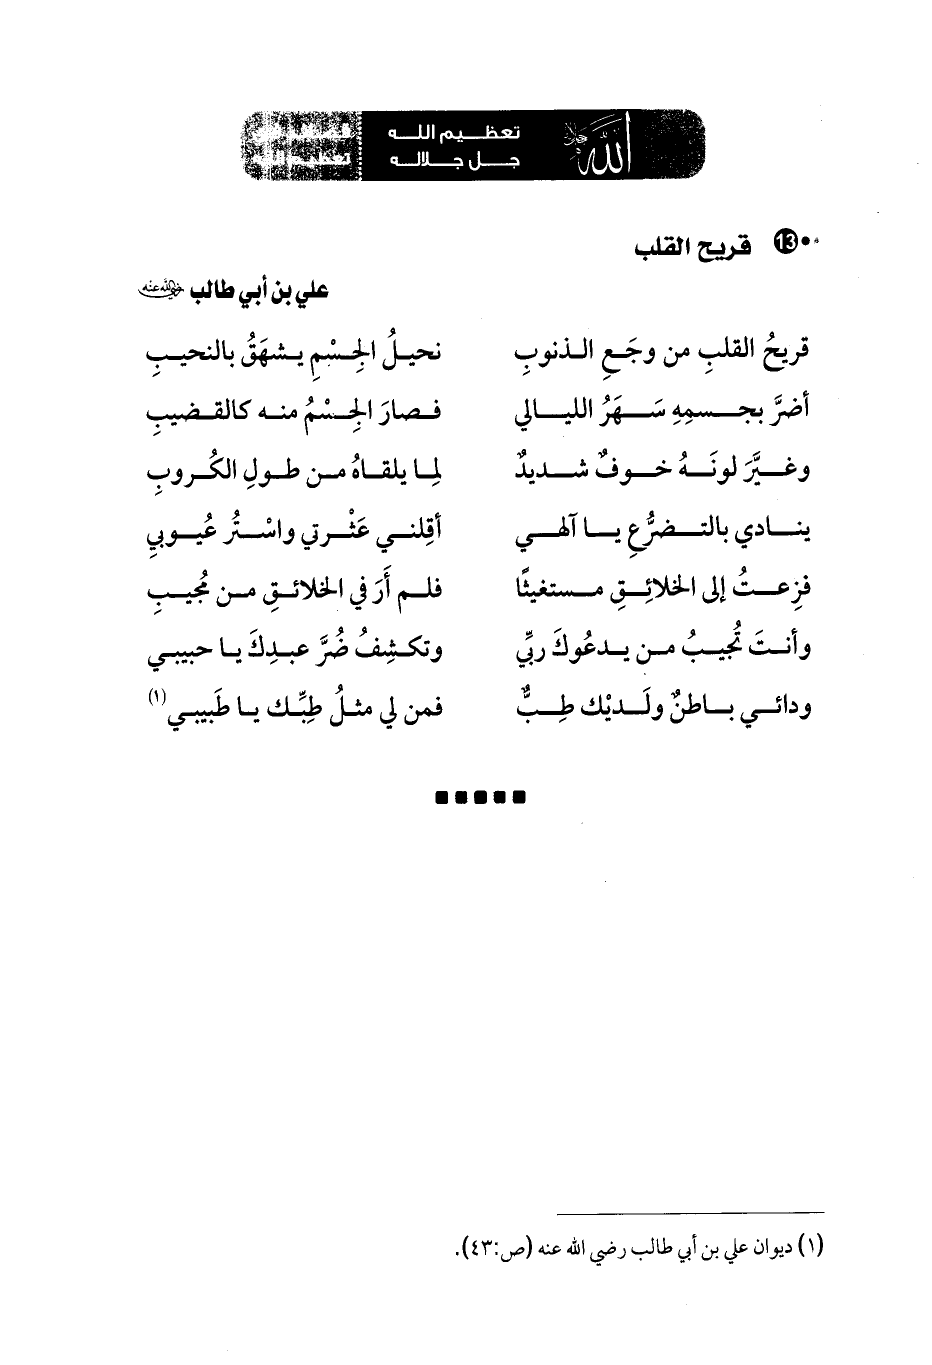 الله جل جلاله
تعظـيم اللـه
جـل جـلالـه
13 قريح القلب
علي بن أبي طالب رضي الله عنه
قريحُ القلبِ من وجَعِ الـذنوبِ نحيـلُ الجِـسْمِ يـشهَقُ بالنحيـبِ
أضرَّ بجـسمِهِ سَـهَرُ الليـالي فـصارَ الجِـسْمُ منـه كالقـضيبِ
وغـيَّرَ لونَـهُ خـوفٌ شـديدٌ لِما يلقـاهُ مـن طـولِ الكُـروبِ
ينـادي بالتـضرُّعِ يـا آلهـي أقِلنـي عَثْـرتي واسْـتُر عُيـوبي
فزِعـتُ إلى الخلائِـقِ مـستغيثًا فلـم أرَ في الخلائـقِ مـن مُجيـبِ
وأنـتَ تُجيـبُ مـن يـدعُوكَ ربِّي وتكـشِفُ ضُرَّ عبـدِكَ يـا حبيبـي
ودائـي بـاطنٌ ولَـديْك طِـبٌّ فمن لي مثـلُ طِبِّـك يـا طَبيبـي(١)
(١) ديوان علي بن أبي طالب رضي الله عنه (ص:٤٣).